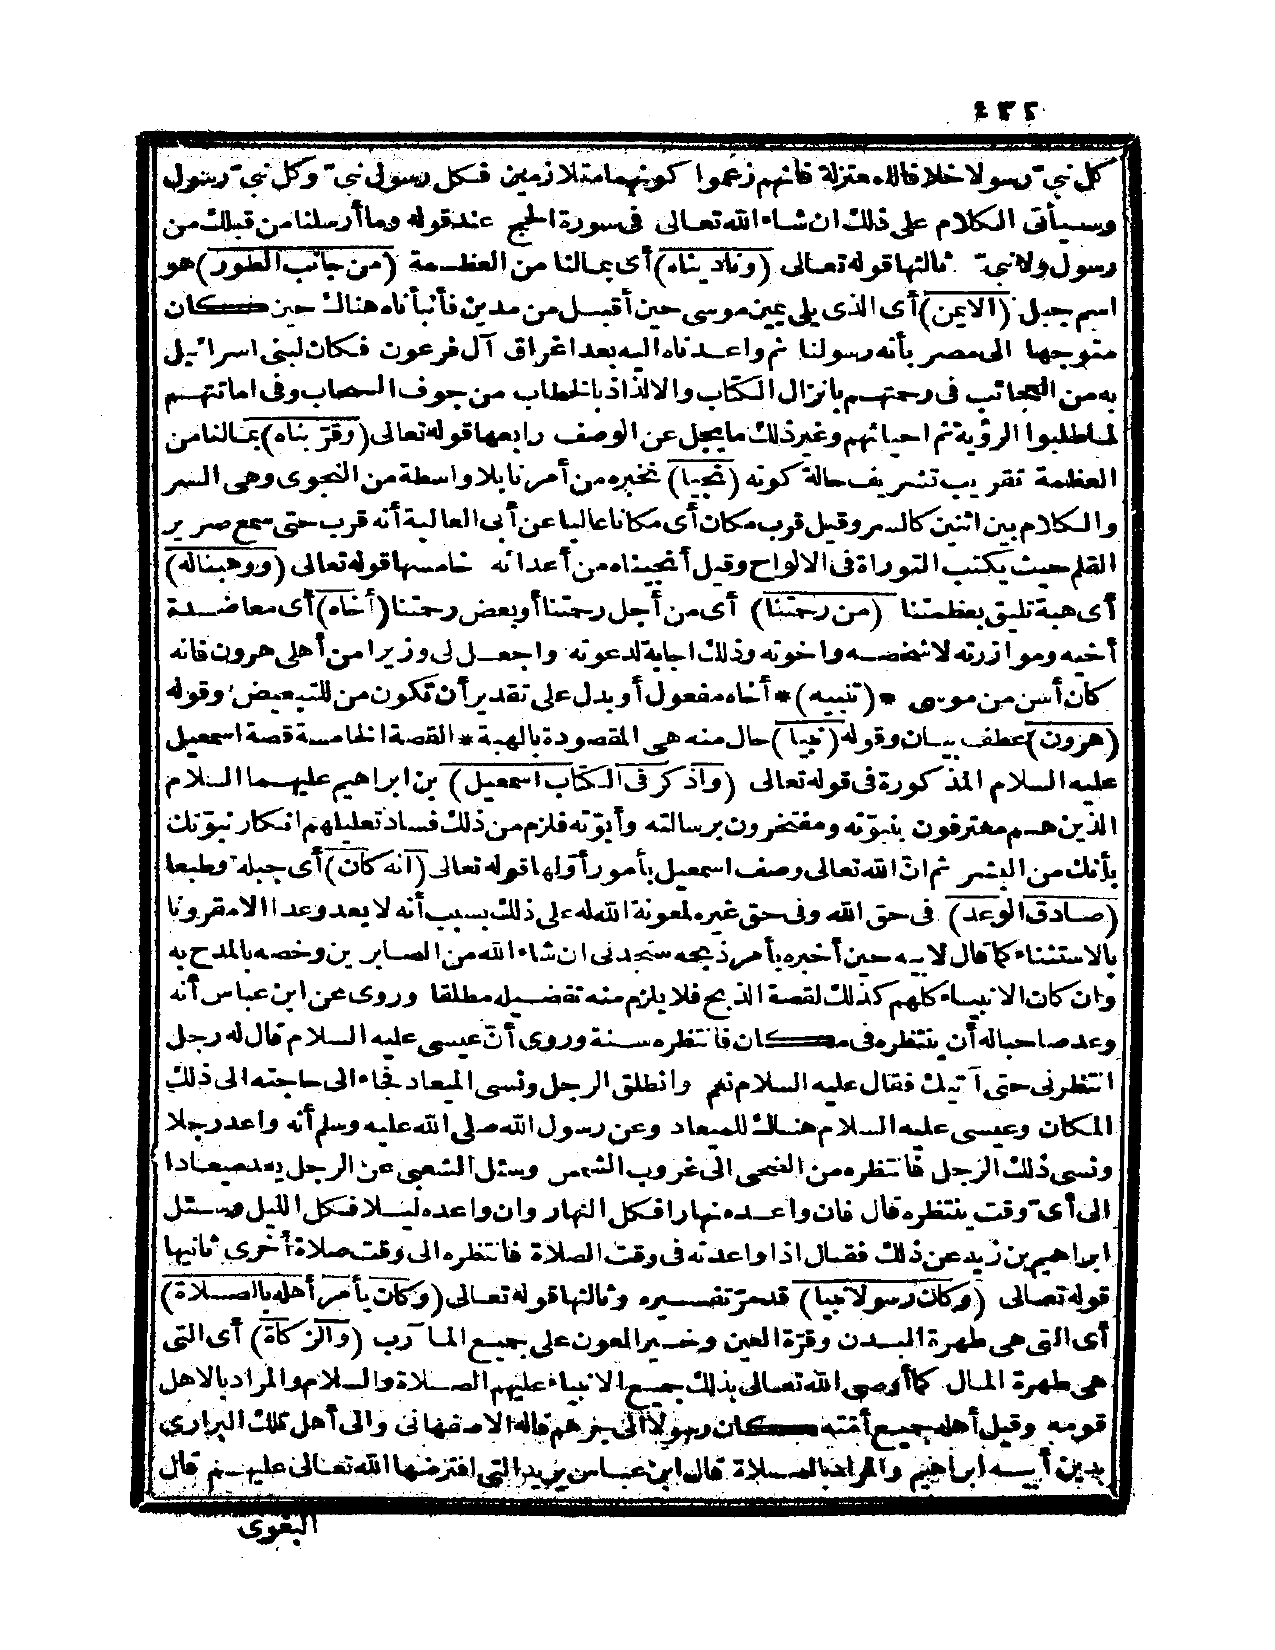 ٤٣٢
كل نبيّ رسولا خلافا للمعتزلة فانهم زعموا كونهما متلازمين فكل رسول نبيّ وكل نبيّ رسول
وسيأتى الكلام على ذلك ان شاء الله تعالى فى سورة الحج عند قوله وما أرسلنا من قبلك من
رسول ولا نبيّ ثالثها قوله تعالى (وناديناه) أى بمالنا من العظمة (من جانب الطور) هو
اسم جبل (الايمن) أى الذى يلى يمين موسى حين أقبل من مدين فأنبأناه هنالك حين كان
متوجها الى مصر بأنه رسولنا ثم واعدناه اليه بعد اغراق آل فرعون فكان لبنى اسرائيل
به من العجائب فى رحمتهم بانزال الكتاب والالذاذ بالخطاب من جوف السحاب وفى اماتتهم
لما طلبوا الرؤية ثم احيائهم وغير ذلك ما يجل عن الوصف رابعها قوله تعالى (وقرّبناه) بمالنا من
العظمة تقريب تشريف حالة كونه (نجيا) نخبره من أمرنا بلا واسطة من النجوى وهى السر
والكلام بين اثنين كالسر وقيل قرب مكان أى مكانا عاليا عن أبى العالية أنه قرب حتى سمع صرير
القلم حيث يكتب التوراة فى الالواح وقيل أنجيناه من أعدائه خامسها قوله تعالى (ووهبناله)
أى هبة تليق بعظمتنا (من رحمتنا) أى من أجل رحمتنا أو بعض رحمتنا (أخاه) أى معاضدة
أخيه وموازرته لا شخصه واخوته وذلك اجابة لدعوته واجعل لى وزيرا من أهلى هرون فانه
كان أسن من موسى * (تنبيه) * أخاه مفعول أو بدل على تقدير أن تكون من للتبعيض وقوله
(هرون) عطف بيان وقوله (نبيا) حال منه هى المقصودة بالهبة * القصة الخامسة قصة اسمعيل
عليه السلام المذكورة فى قوله تعالى (واذكر فى الكتاب اسمعيل) بن ابراهيم عليهما السلام
الذين هم معترفون بنبوّته ومفتخرون برسالته وأبوّته فلزم من ذلك فساد تعليلهم انكار نبوّتك
بأنك من البشر ثم انّ الله تعالى وصف اسمعيل بأمور أوّلها قوله تعالى (انه كان) أى جبلة وطبعا
(صادق الوعد) فى حق الله وفى حق غيره لمعونة الله له على ذلك بسبب أنه لا يعد وعدا الا مقرونا
بالاستثناء كما قال لابيه حين أخبره بأمر ذبحه ستجدنى ان شاء الله من الصابرين وخصه بالمدح به
وان كان الانبياء كلهم كذلك لقصة الذبح فلا يلزم منه تفضيله مطلقا وروى عن ابن عباس أنه
وعد صاحبا له أن ينتظره فى مكان فانتظره سنة وروى أنّ عيسى عليه السلام قال له رجل
انتظرنى حتى آتيك فقال عليه السلام نعم وانطلق الرجل ونسى الميعاد فجاء الى حاجته الى ذلك
المكان وعيسى عليه السلام هنالك للميعاد وعن رسول الله صلى الله عليه وسلم أنه واعد رجلا
ونسى ذلك الرجل فانتظره من الضحى الى غروب الشمس وسئل الشعبى عن الرجل يعد ميعادا
الى أىّ وقت ينتظره قال فان واعده نهارا فكل النهار وان واعده ليلا فكل الليل وسئل
ابراهيم بن زيد عن ذلك فقال اذا واعدته فى وقت الصلاة فانتظره الى وقت صلاة أخرى ثانيها
قوله تعالى (وكان رسولا نبيا) قد مرّ تفسيره وثالثها قوله تعالى (وكان يأمر أهله بالصلاة)
أى التى هى طهرة البدن وقرّة العين وخير العون على جميع المآرب (والزكاة) أى التى
هى طهرة المال كما أوصى الله تعالى بذلك جميع الانبياء عليهم الصلاة والسلام والمراد بالاهل
قومه وقيل أهله جميع أمّته كان رسولا الى جرهم قاله الاصفهانى والى أهل تلك البرارى
بدين أبيه ابراهيم والمراد بالصلاة قال ابن عباس يريد التى افترضها الله تعالى عليهم قال
البغوى